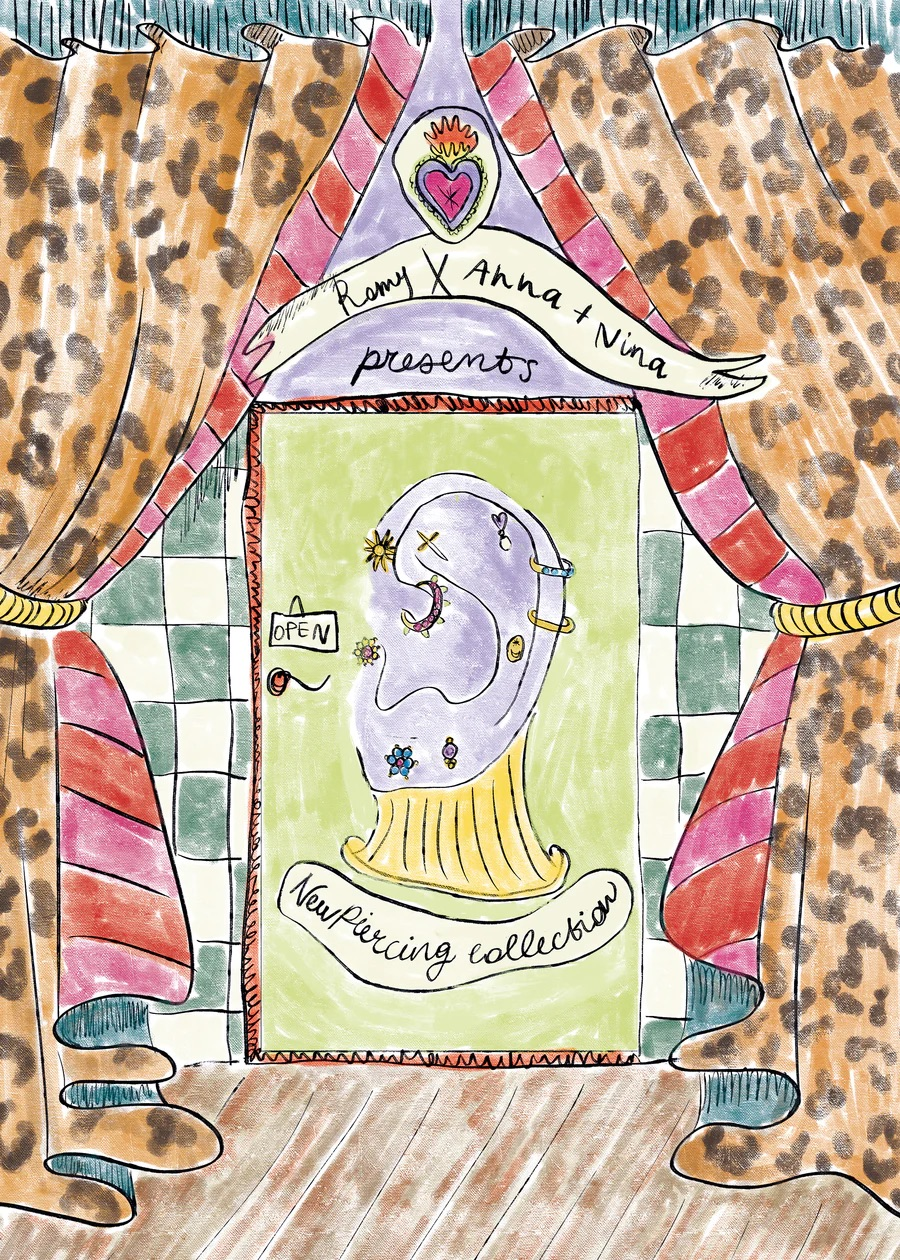 Romy X Anna + Nina
presents
OPEN
New Piercing collection